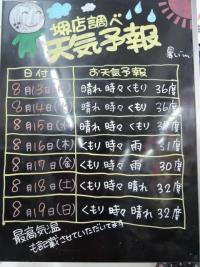 堺店調べ
天気予報
暑い…
日付 お天気予報
8月13日(月) 晴れ 時々 くもり 36度
8月14日(火) 晴れ 時々 くもり 36度
8月15日(水) 晴れ 時々 くもり
8月16日(木) くもり 時々 雨 31度
8月17日(金) くもり 時々 雨 30度
8月18日(土) くもり 時々 晴れ 32度
8月19日(日) くもり 時々 晴れ 32度
最高気温
も記載させていただいてます